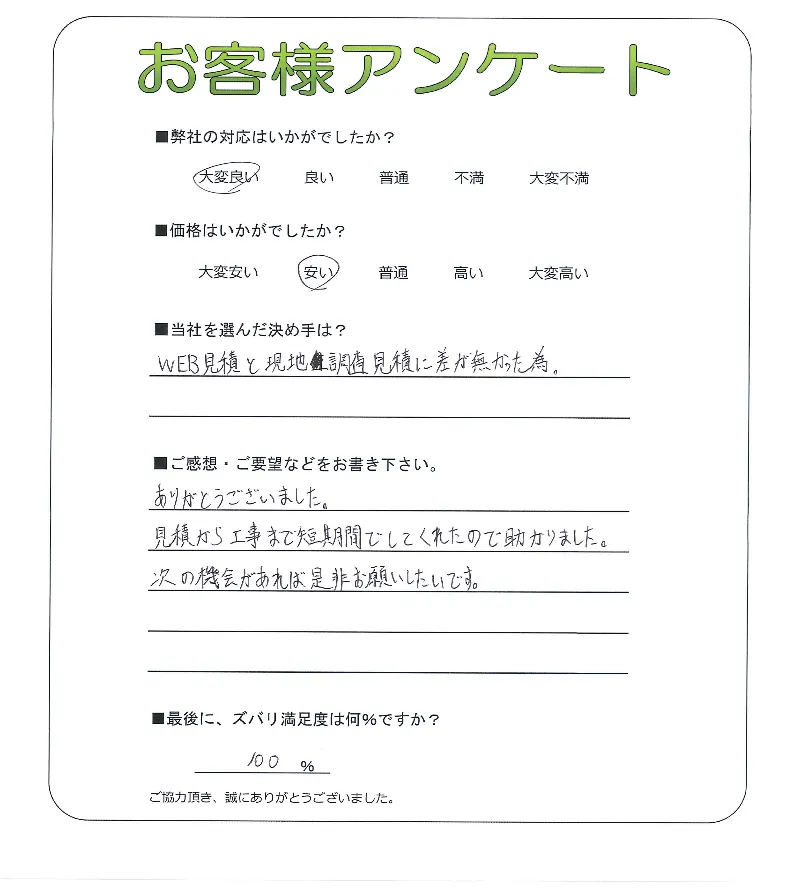 お客様アンケート
■弊社の対応はいかがでしたか？
大変良い 良い 普通 不満 大変不満
■価格はいかがでしたか？
大変安い 安い 普通 高い 大変高い
■当社を選んだ決め手は？
WEB見積と現地調査見積に差が無かった為。
■ご感想・ご要望などをお書き下さい。
ありがとうございました。
見積から工事まで短期間でしてくれたので助かりました。
次の機会があれば是非お願いしたいです。
■最後に、ズバリ満足度は何%ですか？
100 %
ご協力頂き、誠にありがとうございました。